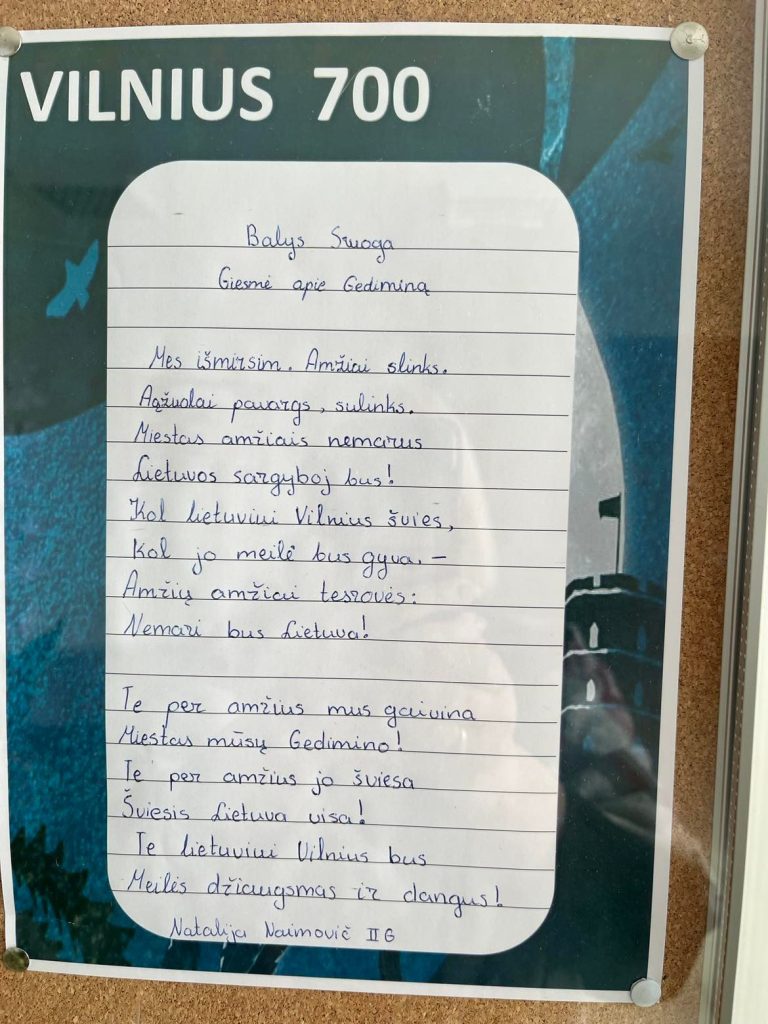 VILNIUS 700
Balys Sruoga
Giesmė apie Gediminą
Mes išmirsim. Amžiai slinks.
Ąąžuolai pavargs, sulinks.
Miestas amžiais nemarus
Lietuvos sargyboj bus!
Kol lietuviui Vilnius švies,
Kol jo meilė bus gyva, –
Amžių amžiai tesrovės:
Nemari bus Lietuva!
Te per amžius mus gaivina
Miestas mūsų Gedimino!
Te per amžius jo šviesa
Šviesis Lietuva visa!
Te lietuviui Vilnius bus
Meilės džiaugsmas ir dangus!
Natalija Naimovič II G